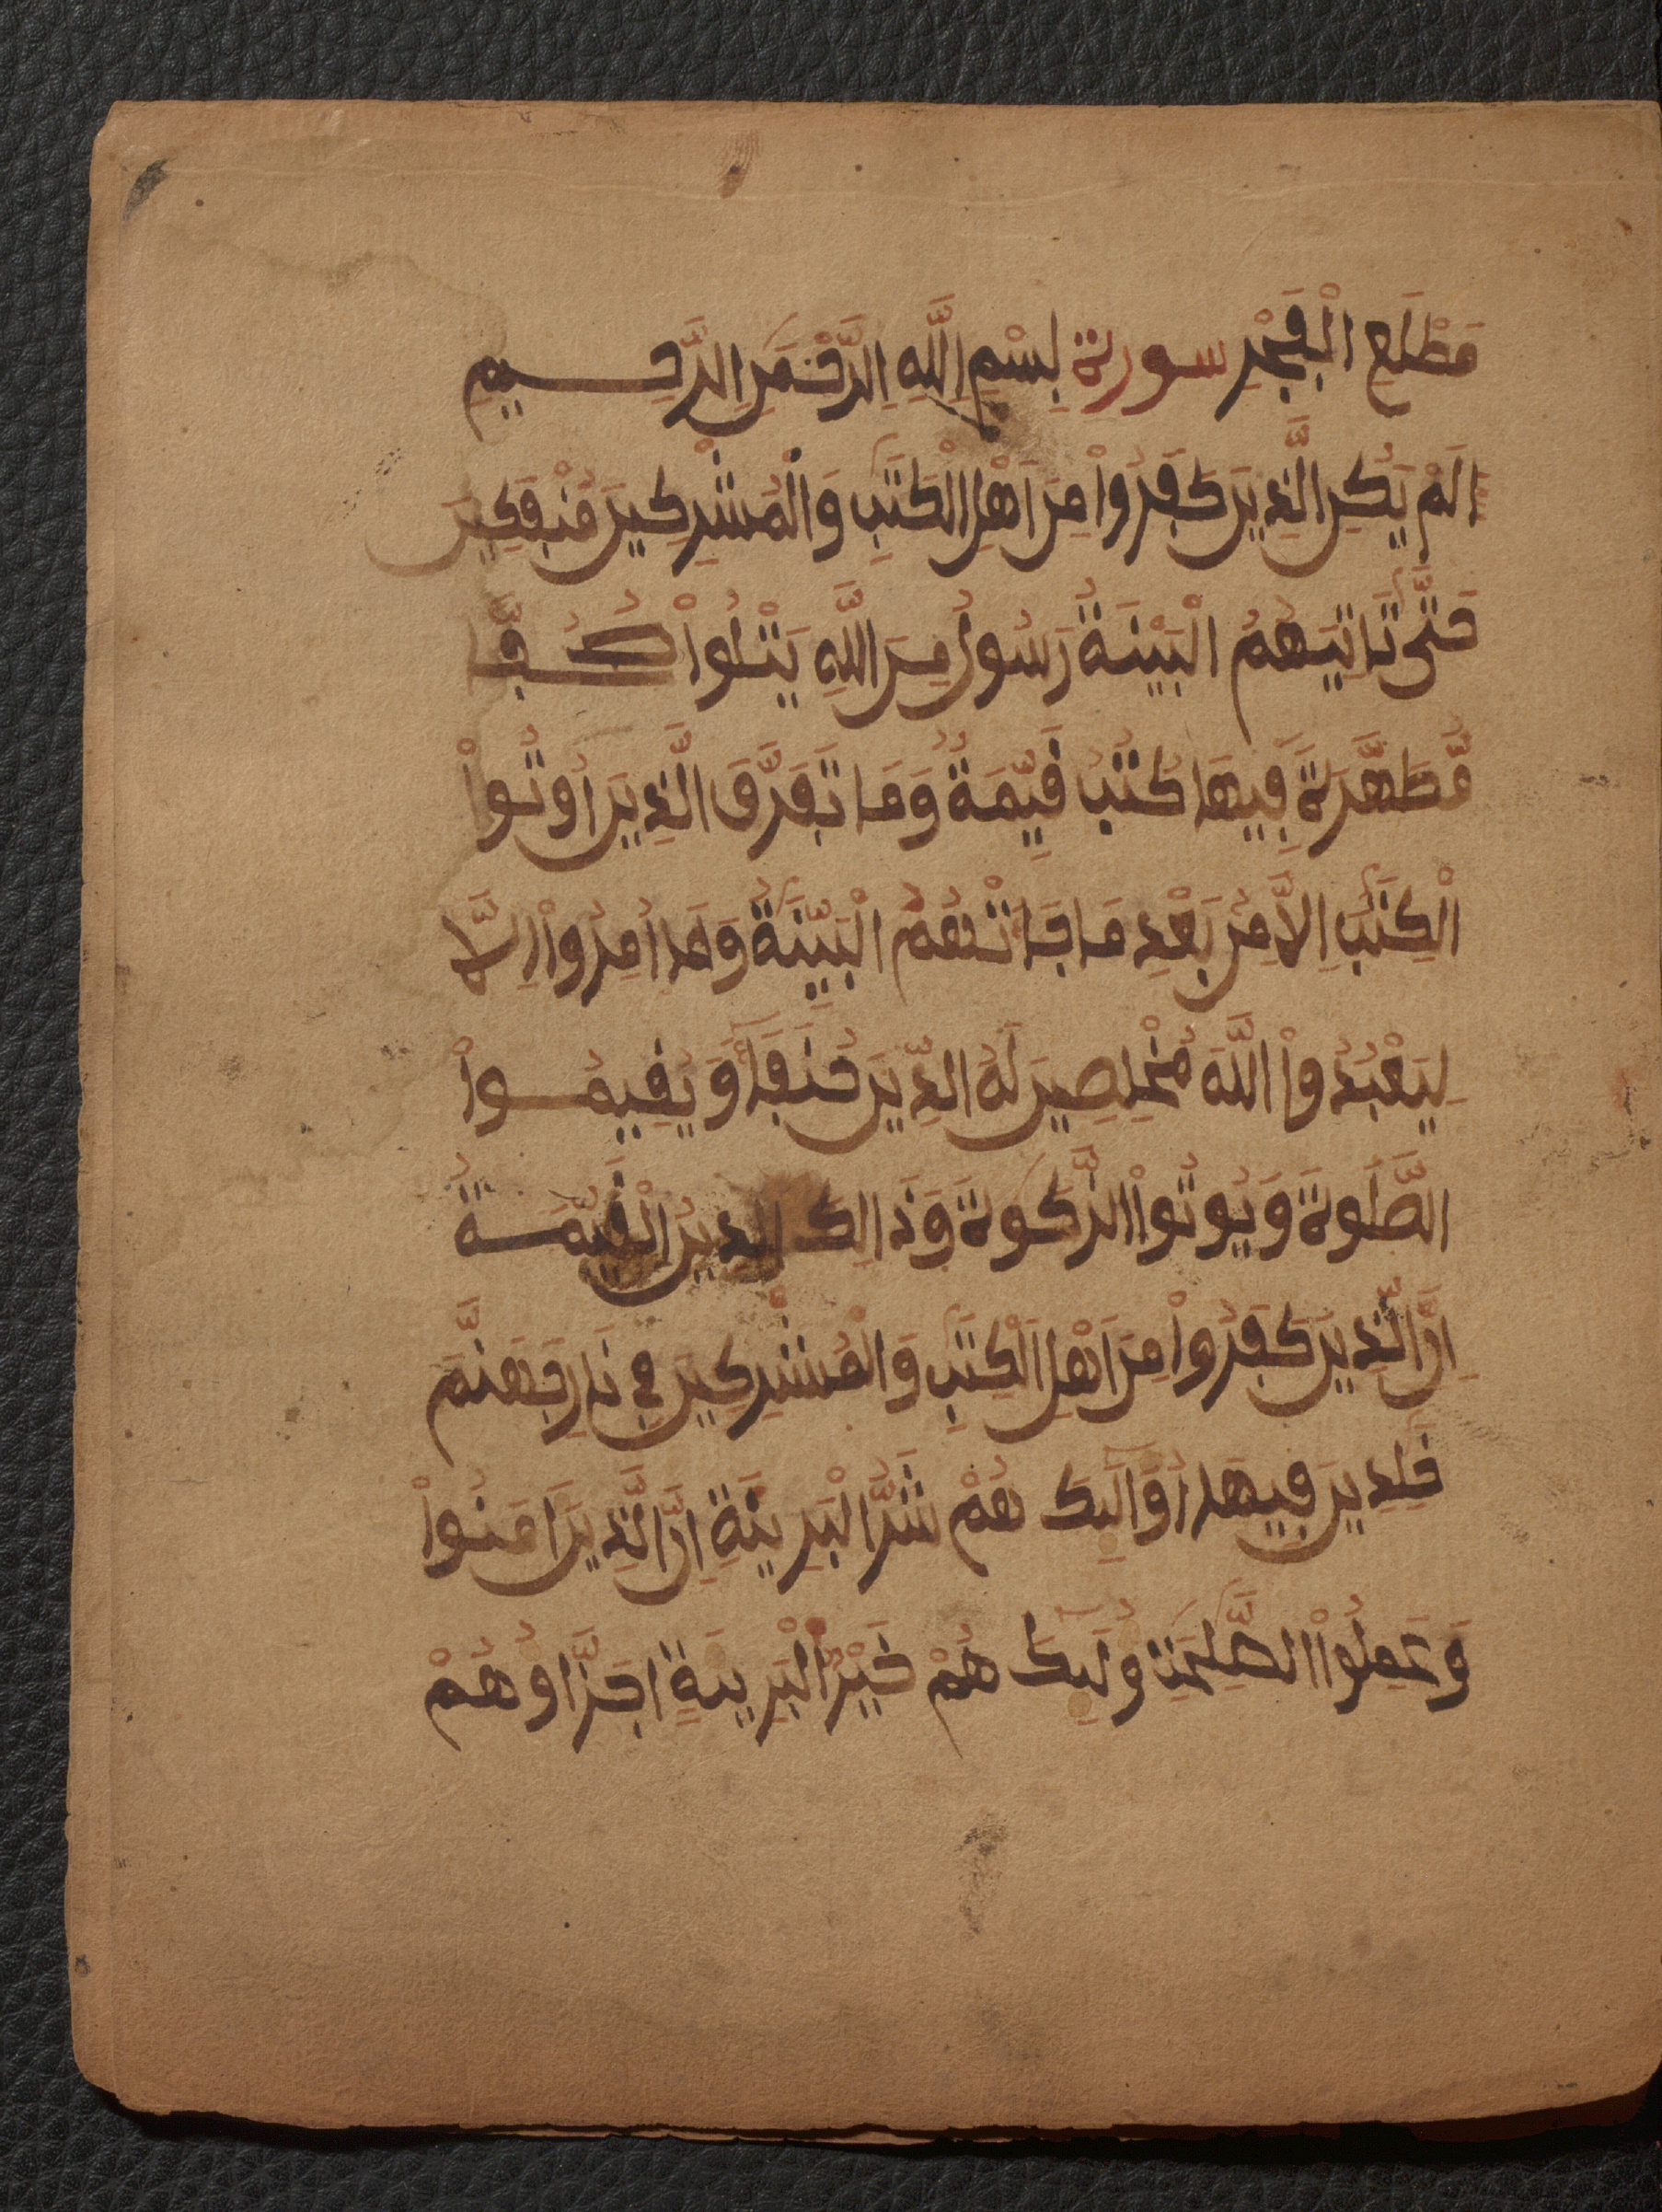 مَطْلَعِ الْفَجْرِ سورة بِسْمِ اِللَّهِ اِلرَّحْمَنِ اِلرَّحِيمِ
الَمْ يَكُنِ الَّذِينَ كَفَرُواْ مِنَ اَهْلِ الْكِتَبِ وَالْمُشْرِكِينَ مُنفَكِينَ
حَتَّى تَاتِيَهُمُ الْبَيِّنَةُ رَسُولٌ مِنَ اللَّهِ يَتْلُواْ صُحُفًا
مُّطَهَّرَةً فِيهَا كُتُبٌ قَيِّمَةٌ وَمَا تَفَرَّقَ الَّذِينَ أُوتُواْ
الْكِتَبَ اِلاَّ مِن بَعْدِ مَا جَاتْهُمُ الْبَيِّنَةُ وَمَا أُمِرُواْ إِلاَّ
لِيَعْبُدُواْ اللَّهَ مُخْلِصِينَ لَهُ الدِّينَ حُنَفَا وَيُقِيمُواْ
الصَّلَوةَ وَيُوتُواْ الزَّكَوةَ وَذَالِكَ الدِينُ الْقَيِّمَةُ
اِنَّ الَّذِينَ كَفَرُواْ مِنَ اَهْلِ الْكِتَبِ وَالْمُشْرِكِينَ فِي نَارِ جَهَنَّمَ
خَلِدِينَ فِيهَا أُوْلَيِكَ هُمْ شَرُّ الْبَرِيئَةِ اِنَّ الَّذِينَ ءَامَنُواْ
وَعَمِلُواْ الصَّلِحَتِ وُلَيِكَ هُمْ خَيْرُ الْبَرِيئَةِ اجَزَاوُهُمْ